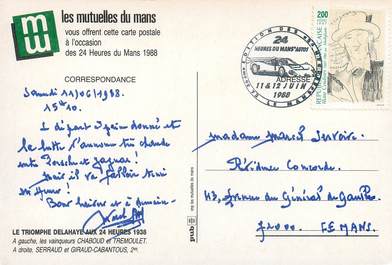 les mutuelles du mans
vous offrent cette carte postale
à l'occasion
des 24 Heures du Mans 1988
24
HEURES DU MANS "AUTOS"
11 & 12 JUIN
1988
2,00
RÉPUBLIQUE FRANÇAISE
CORRESPONDANCE
ADRESSE
Samedi 11/06/1988.
15h10.
1 départ donné et
la lutte s'annonce très chaude
entre Porsche et Jaguar!
mais il va falloir tenir
24 Heures!
Bon baiser et à demain
madame Marcel
Résidence Concorde.
43, avenue du Général de Gaulle
72000 LE MANS.
LE TRIOMPHE DELAHAYE AUX 24 HEURES 1938
A gauche, les vainqueurs CHABOUD et TREMOULET.
A droite, SERRAUD et GIRAUD-CABANTOUS, 2es.
les mutuelles du mans